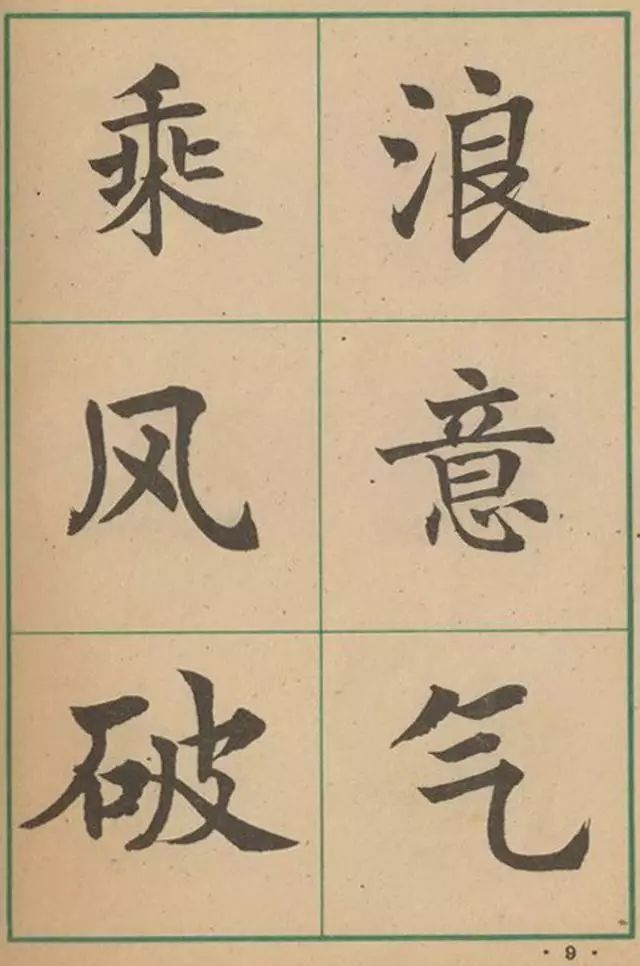 乘风破
浪意气
· 9 ·